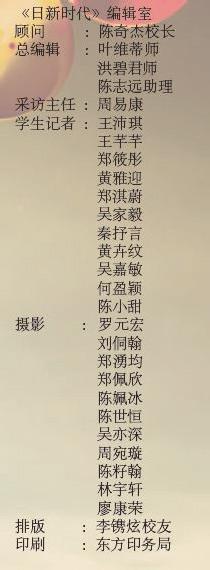 《日新时代》编辑室
顾问 : 陈奇杰校长
总编辑 : 叶维蒂师
洪碧君师
陈志远助理
采访主任 : 周易康
学生记者 : 王沛琪
王芊芊
郑筱彤
黄雅迎
郑淇蔚
吴家毅
秦抒言
黄卉纹
吴嘉敏
何盈颖
陈小甜
摄影 : 罗元宏
刘侗翰
郑湧均
郑佩欣
陈姵冰
陈世恒
吴亦深
周宛璇
陈籽翰
林宇轩
廖康荣
排版 : 李镌炫校友
印刷 : 东方印务局